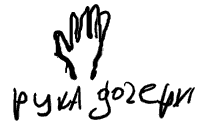 рука дочери